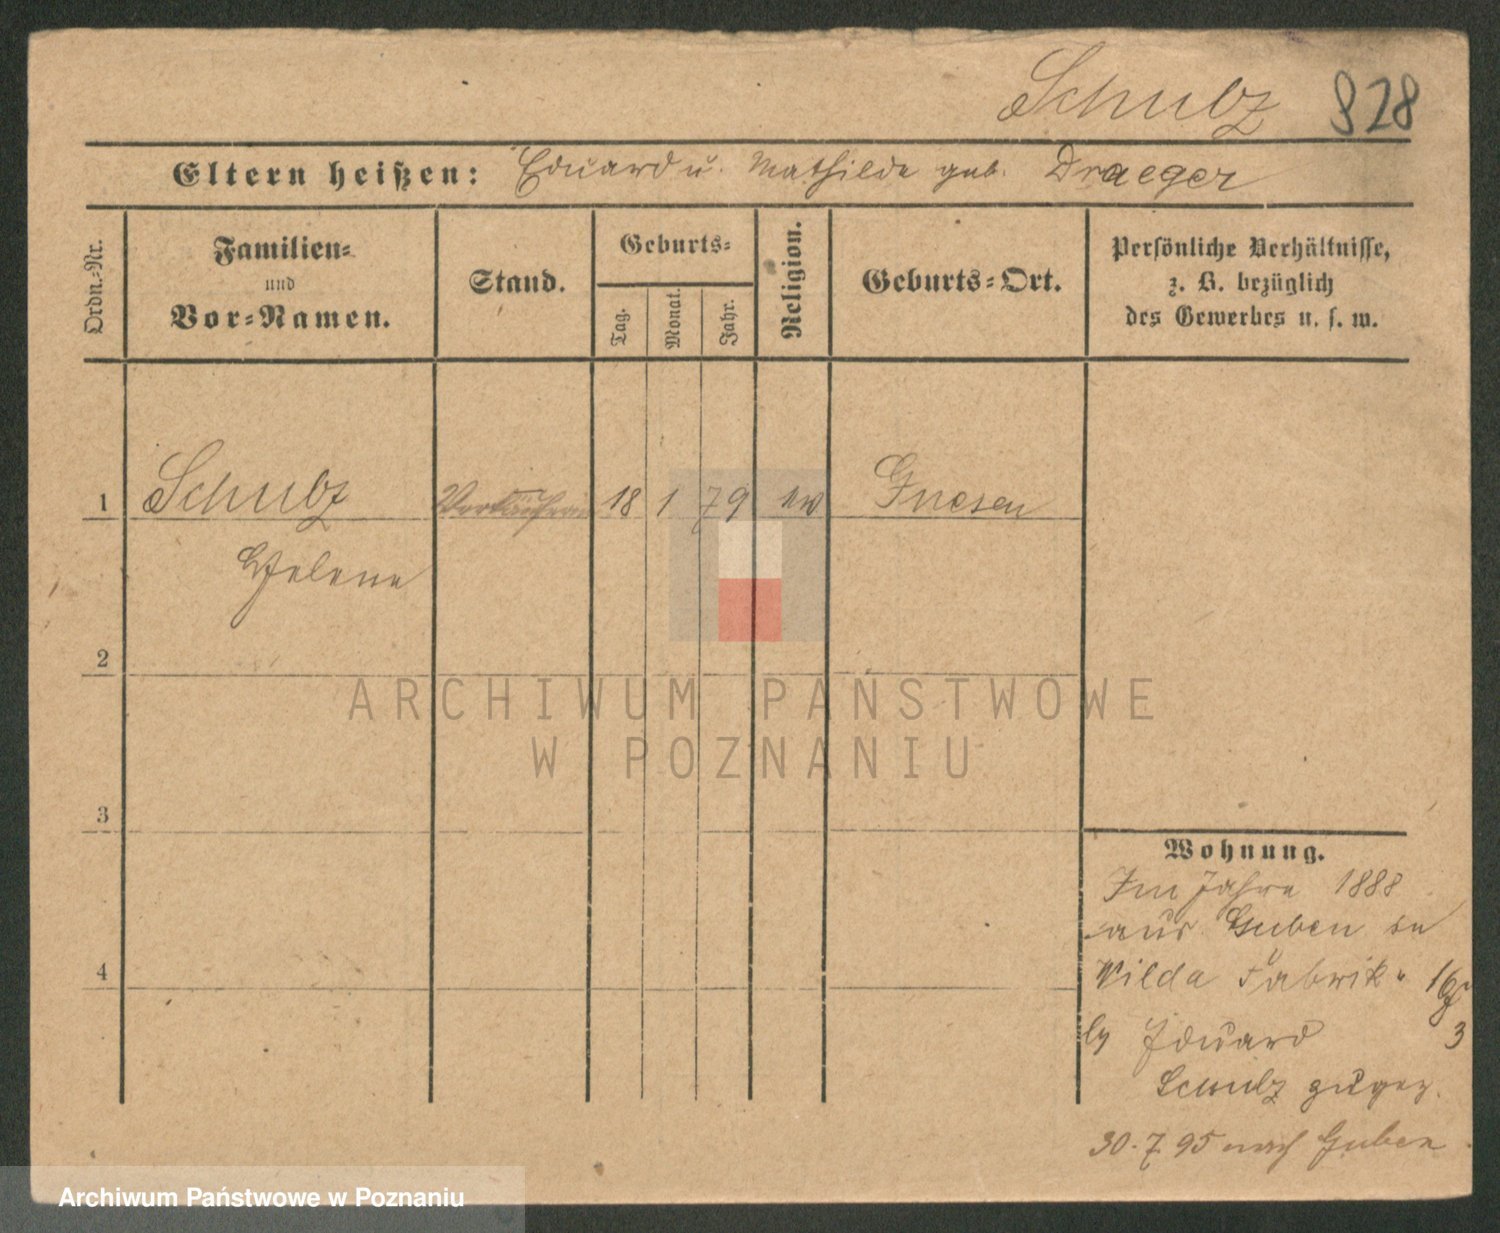 Schulz 828
Eltern heißen: Eduard u. Mathilde geb. Draeger
Ordn.-Nr.
Familien-
und
Vor-Namen.
Stand.
Geburts-
Tag.
Monat.
Jahr.
Religion.
Geburts-Ort.
Persönliche Verhältnisse,
z. B. bezüglich
des Gewerbes u. s. w.
1 Schulz Verkäuferin 18 1 79 ev Gnesen
Helene
2
3
4
Wohnung.
Im Jahre 1888
aus Guben in
Wilda Fabrik-
by Eduard 3
Schulz zugez.
30.7.95 nach Guben
ARCHIWUM PAŃSTWOWE
W POZNANIU
Archiwum Państwowe w Poznaniu